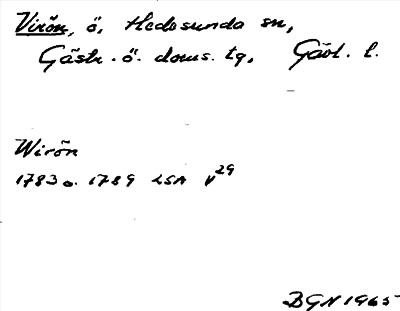 Virön, ö, Hedesunda sn,
Gästr. ö. doms. tg, Gävl. l.
Wirön
1783 o. 1789 LSA V29
DGN 1965